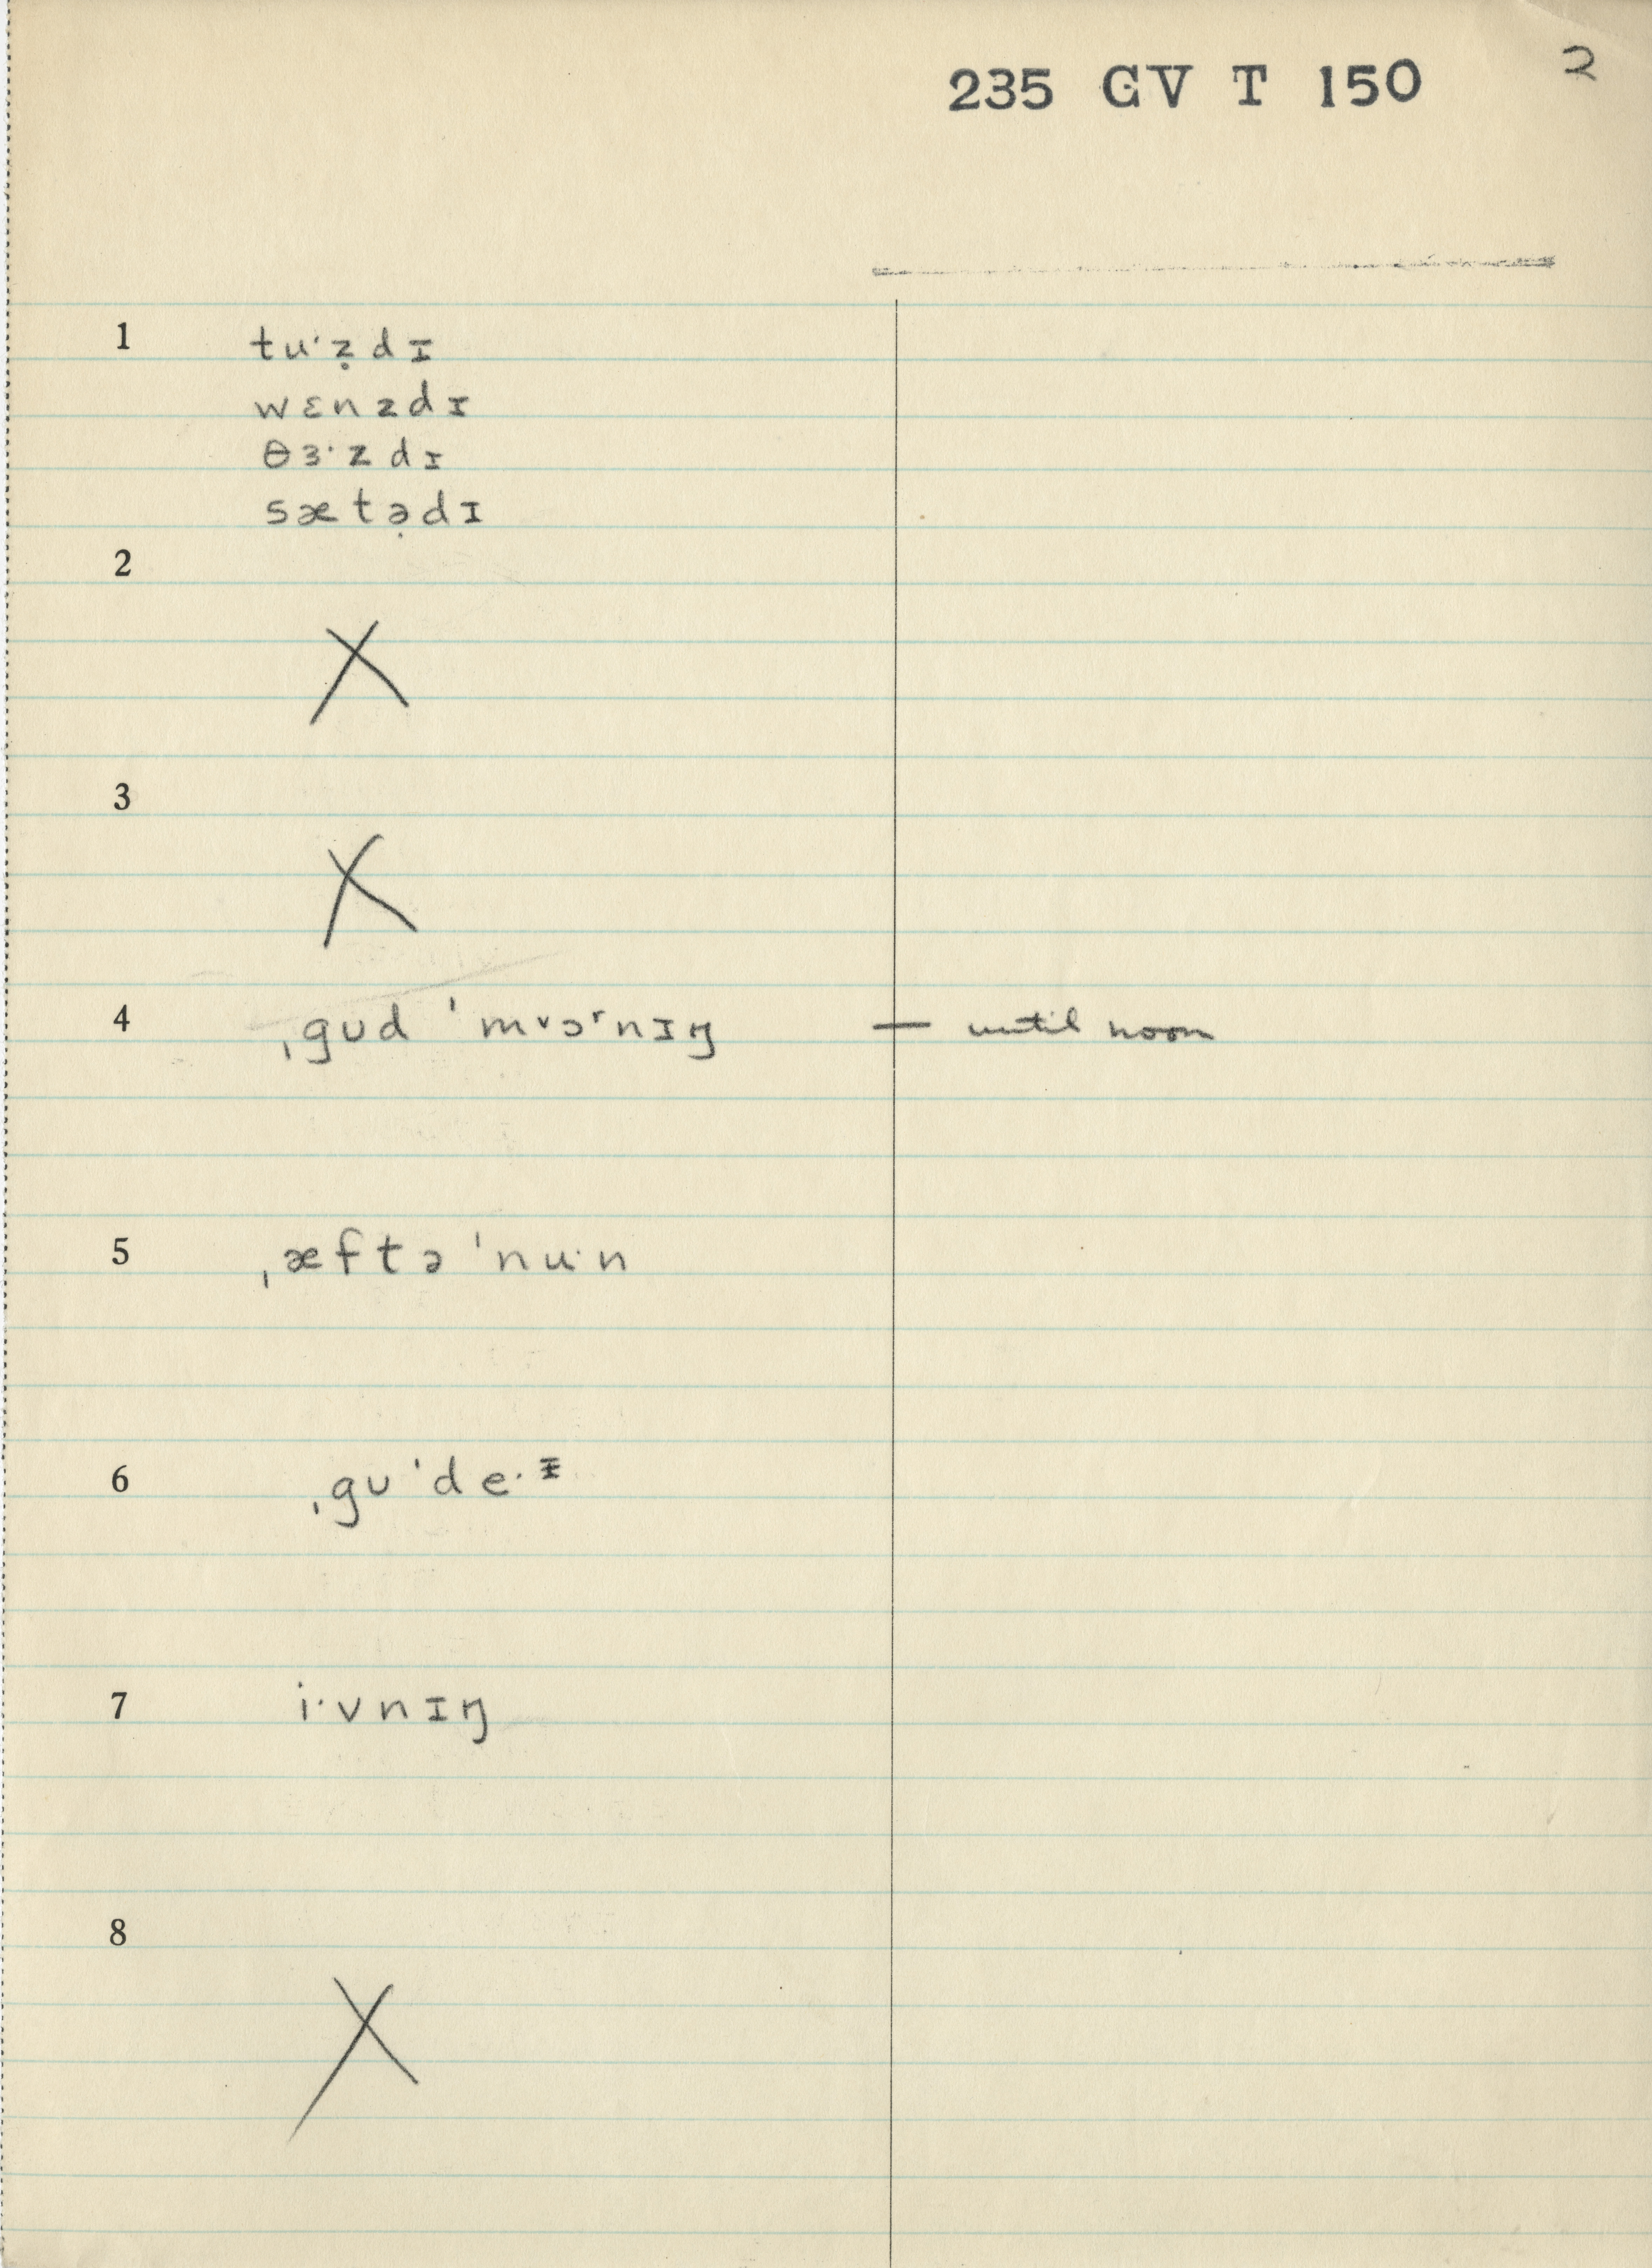 235 GV T 150 2
1 tuˑẓdɪ
wɛnzdɪ
θɜˑzdɪ
sætə̣dɪ
2
X
3
X
4 ˌgʊd ˈmᵛɔʳnɪŋ — until noon
5 ˌæftə ˈnuˑn
6 ˌgʊ ˈdeˑᵻ
7 iˑvnɪŋ
8
X